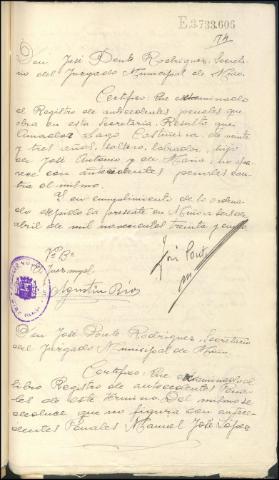 E3.733.606
174
Don José Pento Rodriguez, Secreta-
rio del Juzgado Municipal de
Certifico: Que examinado
el Registro de antecedentes penales que
obra en esta Secretaria. Resulta que
Amador Lago Castiñeira de veinte
y tres años, soltero, labrador, hijo
de José Antonio y de Maria, no apa-
rece con antecedentes penales con-
tra el mismo.
Y en cumplimiento de lo ordena-
do expido la presente en a seis de
abril de mil novecientos treinta y
José
Vº Bº
El Juez mpal
Agustin
Don José Pento Rodriguez, Secretario
del Juzgado Municipal de
Certifico: Que examinado el
libro Registro de antecedentes Pena-
les de este termino. Del mismo se
deduce que no figura con antece-
dentes Penales Manuel José Lopez